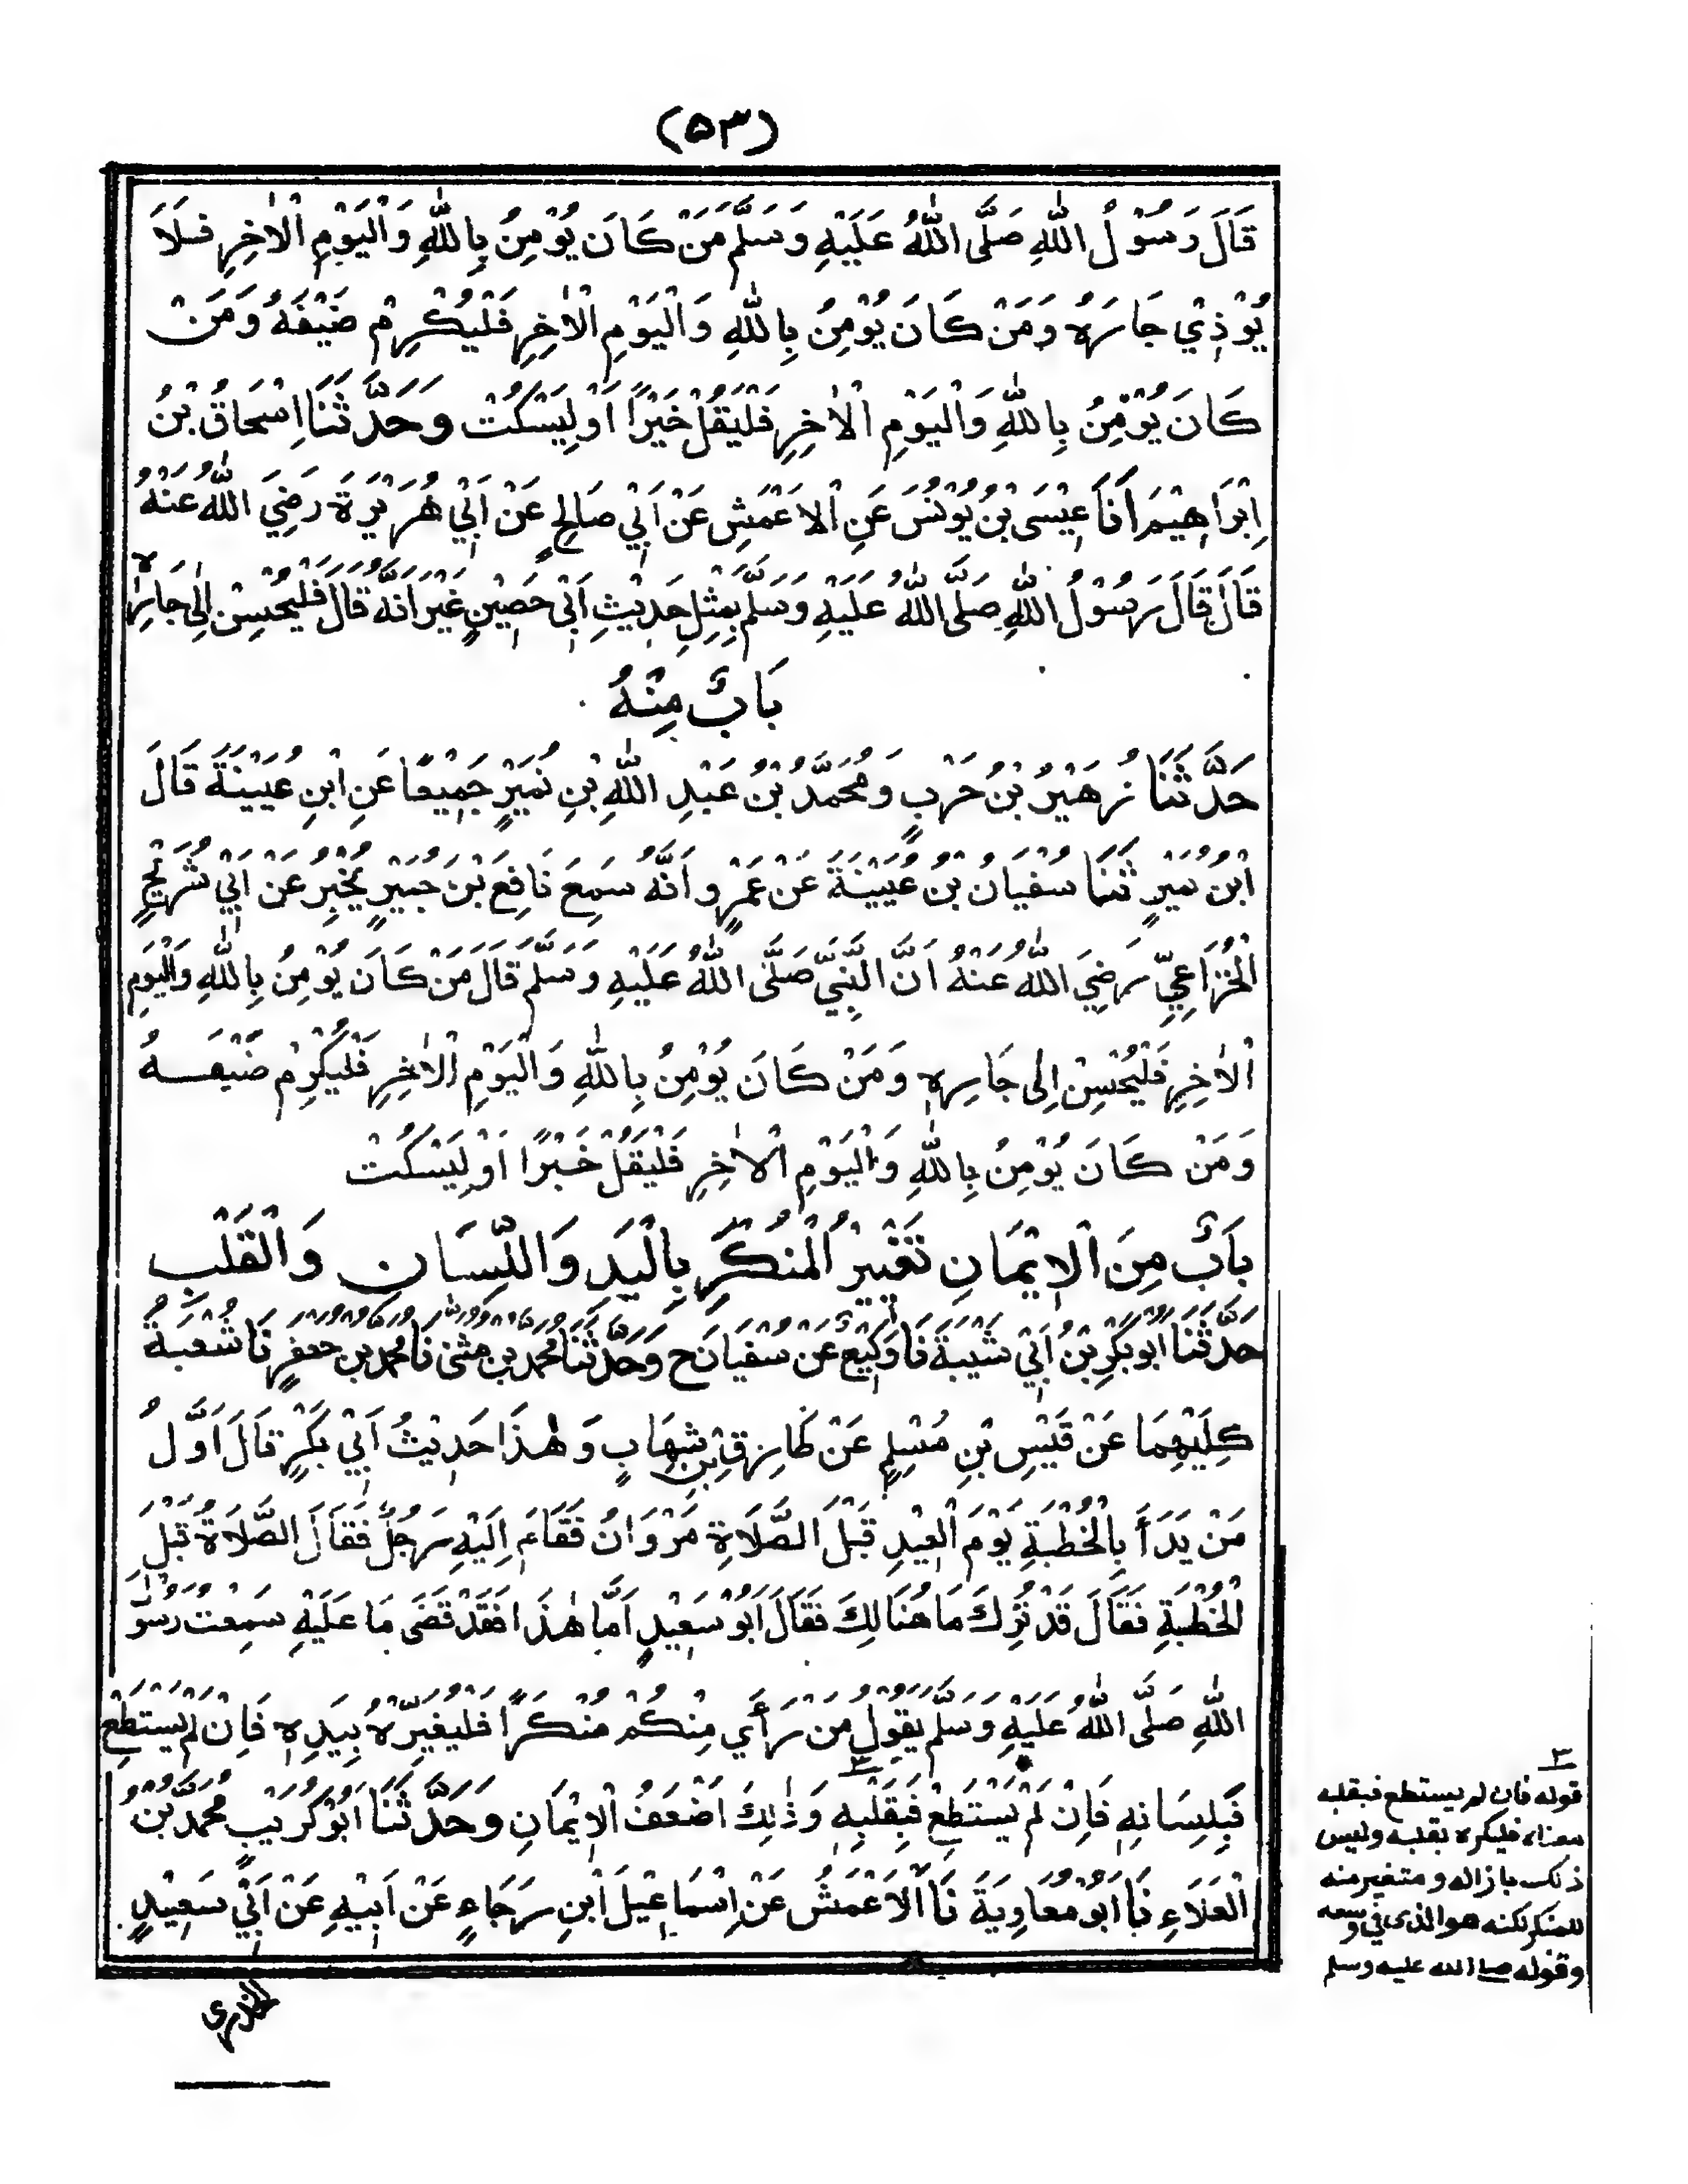 (٥٣)
قَالَ رَسُوْلُ اللّٰهِ صَلَّى اللّٰهُ عَلَيْهِ وَسَلَّمَ مَنْ كَانَ يُؤْمِنُ بِاللّٰهِ وَالْيَوْمِ الْاٰخِرِ فَلَا
يُؤْذِيْ جَارَهُ وَمَنْ كَانَ يُؤْمِنُ بِاللّٰهِ وَالْيَوْمِ الْاٰخِرِ فَلْيُكْرِمْ ضَيْفَهُ وَمَنْ
كَانَ يُؤْمِنُ بِاللّٰهِ وَالْيَوْمِ الْاٰخِرِ فَلْيَقُلْ خَيْرًا اَوْ لِيَسْكُتْ وَحَدَّثَنَا اِسْحَاقُ بْنُ
اِبْرَاهِيْمَ اَنَا عِيْسَى بْنُ يُوْنُسَ عَنِ الْاَعْمَشِ عَنْ اَبِيْ صَالِحٍ عَنْ اَبِيْ هُرَيْرَةَ رَضِيَ اللّٰهُ عَنْهُ
قَالَ قَالَ رَسُوْلُ اللّٰهِ صَلَّى اللّٰهُ عَلَيْهِ وَسَلَّمَ بِمِثْلِ حَدِيْثِ اَبِيْ حَصِيْنٍ غَيْرَ اَنَّهُ قَالَ فَلْيُحْسِنْ اِلٰى جَارِهٖ
بَابٌ مِنْهُ
حَدَّثَنَا زُهَيْرُ بْنُ حَرْبٍ وَمُحَمَّدُ بْنُ عَبْدِ اللّٰهِ بْنِ نُمَيْرٍ جَمِيْعًا عَنِ ابْنِ عُيَيْنَةَ قَالَ
ابْنُ نُمَيْرٍ ثَنَا سُفْيَانُ بْنُ عُيَيْنَةَ عَنْ عَمْرٍو اَنَّهُ سَمِعَ نَافِعَ بْنَ جُبَيْرٍ يُخْبِرُ عَنْ اَبِيْ شُرَيْحٍ
الْخُزَاعِيِّ رَضِيَ اللّٰهُ عَنْهُ اَنَّ النَّبِيَّ صَلَّى اللّٰهُ عَلَيْهِ وَسَلَّمَ قَالَ مَنْ كَانَ يُؤْمِنُ بِاللّٰهِ وَالْيَوْمِ
الْاٰخِرِ فَلْيُحْسِنْ اِلٰى جَارِهِ وَمَنْ كَانَ يُؤْمِنُ بِاللّٰهِ وَالْيَوْمِ الْاٰخِرِ فَلْيُكْرِمْ ضَيْفَهُ
وَمَنْ كَانَ يُؤْمِنُ بِاللّٰهِ وَالْيَوْمِ الْاٰخِرِ فَلْيَقُلْ خَيْرًا اَوْ لِيَسْكُتْ
بَابٌ مِنَ الْاِيْمَانِ تَغْيِيْرُ الْمُنْكَرِ بِالْيَدِ وَاللِّسَانِ وَالْقَلْبِ
حَدَّثَنَا اَبُوْ بَكْرِ بْنُ اَبِيْ شَيْبَةَ نَا وَكِيْعٌ عَنْ سُفْيَانَ ح وَحَدَّثَنَا مُحَمَّدُ بْنُ مُثَنّٰى نَا مُحَمَّدُ بْنُ جَعْفَرٍ نَا شُعْبَةُ
كِلَيْهِمَا عَنْ قَيْسِ بْنِ مُسْلِمٍ عَنْ طَارِقِ بْنِ شِهَابٍ وَهٰذَا حَدِيْثُ اَبِيْ بَكْرٍ قَالَ اَوَّلُ
مَنْ بَدَأَ بِالْخُطْبَةِ يَوْمَ الْعِيْدِ قَبْلَ الصَّلَاةِ مَرْوَانُ فَقَامَ اِلَيْهِ رَجُلٌ فَقَالَ الصَّلَاةُ قَبْلَ
الْخُطْبَةِ فَقَالَ قَدْ تُرِكَ مَا هُنَالِكَ فَقَالَ اَبُوْ سَعِيْدٍ اَمَّا هٰذَا فَقَدْ قَضٰى مَا عَلَيْهِ سَمِعْتُ رَسُوْلَ
اللّٰهِ صَلَّى اللّٰهُ عَلَيْهِ وَسَلَّمَ يَقُوْلُ مَنْ رَأَي مِنْكُمْ مُنْكَرًا فَلْيُغَيِّرْهُ بِيَدِهِ فَاِنْ لَمْ يَسْتَطِعْ
فَبِلِسَانِهِ فَاِنْ لَمْ يَسْتَطِعْ فَبِقَلْبِهِ وَذٰلِكَ اَضْعَفُ الْاِيْمَانِ وَحَدَّثَنَا اَبُوْ كُرَيْبٍ مُحَمَّدُ بْنُ
الْعَلَاءِ نَا اَبُوْ مُعَاوِيَةَ نَا الْاَعْمَشُ عَنْ اِسْمَاعِيْلَ ابْنِ رَجَاءٍ عَنْ اَبِيْهِ عَنْ اَبِيْ سَعِيْدٍ
الخدرى
٣
قوله فان لم يستطع فبقلبه
معناه فليكره بقلبه وليس
ذلك بازاله و متغير منه
للمنكر لكنه هو الذى فى وسعه
وقوله صلى الله عليه وسلم